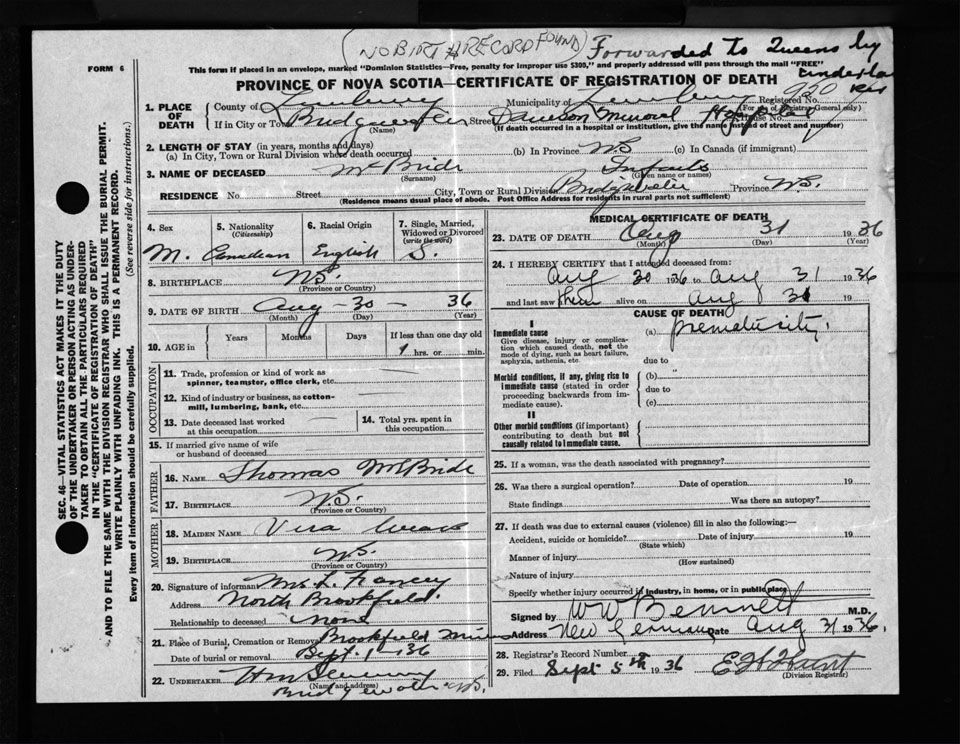 (NO BIRTH RECORD FOUND) Forwarded to Queens by
FORM 6
This form if placed in an envelope, marked "Dominion Statistics—Free, penalty for improper use $300," and properly addressed will pass through the mail "FREE"
PROVINCE OF NOVA SCOTIA—CERTIFICATE OF REGISTRATION OF DEATH
SEC. 46—VITAL STATISTICS ACT MAKES IT THE DUTY
OF THE UNDERTAKER OR PERSON ACTING AS UNDER-
TAKER TO OBTAIN ALL THE PARTICULARS REQUIRED
IN THE "CERTIFICATE OF REGISTRATION OF DEATH"
AND TO FILE THE SAME WITH THE DIVISION REGISTRAR WHO SHALL ISSUE THE BURIAL PERMIT.
WRITE PLAINLY WITH UNFADING INK. THIS IS A PERMANENT RECORD.
Every item of information should be carefully supplied. (See reverse side for instructions.)
1. PLACE OF DEATH County of Lunenburg Municipality of Lunenburg Registered No. 950
(For use of Registrar General only)
If in City or Town Bridgewater Street Dawson Memorial Hospital House No.
(Name) (If death occurred in a hospital or institution, give the name instead of street and number)
2. LENGTH OF STAY (in years, months and days)
(a) In City, Town or Rural Division where death occurred (b) In Province NS. (c) In Canada (if immigrant)
3. NAME OF DECEASED McBride Infants
(Surname) (Given name or names)
RESIDENCE No. Street City, Town or Rural Division Bridgewater Province NS.
(Residence means usual place of abode. Post Office Address for residents in rural parts not sufficient)
4. Sex 5. Nationality 6. Racial Origin 7. Single, Married,
(Citizenship) Widowed or Divorced
(write the word)
M. Canadian English S.
8. BIRTHPLACE NS.
(Province or Country)
9. DATE OF BIRTH Aug 30 - 36
(Month) (Day) (Year)
10. AGE in Years Months Days If less than one day old
hrs. or min.
OCCUPATION
11. Trade, profession or kind of work as
spinner, teamster, office clerk, etc.
12. Kind of industry or business, as cotton-
mill, lumbering, bank, etc.
13. Date deceased last worked
at this occupation
14. Total yrs. spent in
this occupation
15. If married give name of wife
or husband of deceased
FATHER
16. NAME Thomas McBride
17. BIRTHPLACE NS.
(Province or Country)
MOTHER
18. MAIDEN NAME Vera
19. BIRTHPLACE NS.
(Province or Country)
20. Signature of informant Mrs. L.
Address North Brookfield.
Relationship to deceased none
21. Place of Burial, Cremation or Removal Brookfield Mines
Date of burial or removal Sept. 1 - 36
22. UNDERTAKER
(Name and address)
Bridgewater NS.
MEDICAL CERTIFICATE OF DEATH
23. DATE OF DEATH Aug 31 1936
(Month) (Day) (Year)
24. I HEREBY CERTIFY that I attended deceased from:
Aug 30 1936 to Aug 31 1936
and last saw alive on Aug 31 19
CAUSE OF DEATH
I
Immediate cause
Give disease, injury or complica-
tion which caused death, not the
mode of dying, such as heart failure,
asphyxia, asthenia, etc.
(a) prematurity.
due to
Morbid conditions, if any, giving rise to
immediate cause (stated in order
proceeding backwards from im-
mediate cause).
(b)
due to
(c)
II
Other morbid conditions (if important)
contributing to death but not
causally related to immediate cause.
25. If a woman, was the death associated with pregnancy?
26. Was there a surgical operation? Date of operation 19
State findings Was there an autopsy?
27. If death was due to external causes (violence) fill in also the following:—
Accident, suicide or homicide? Date of injury 19
(State which)
Manner of injury
(How sustained)
Nature of injury
Specify whether injury occurred in industry, in home, or in public place
Signed by W W Bennett M.D.
Address New Germany Date Aug 31 1936.
28. Registrar's Record Number
29. Filed Sept 5th 1936
(Division Registrar)